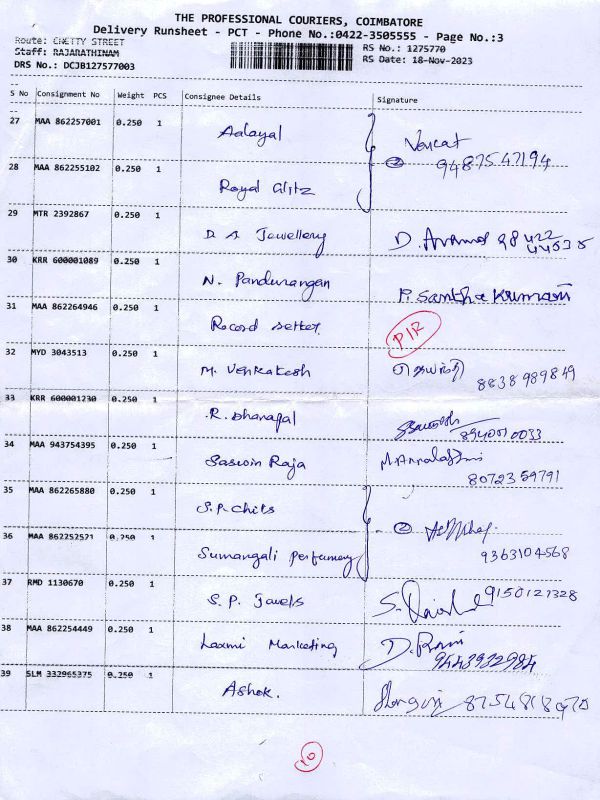 THE PROFESSIONAL COURIERS, COIMBATORE
Delivery Runsheet - PCT - Phone No.:0422-3505555 - Page No.:3
Route: CHETTY STREET
Staff: RAJARATHINAM
DRS No.: DCJB127577003
RS No.: 1275770
RS Date: 18-Nov-2023
S No Consignment No Weight PCS Consignee Details Signature
27 MAA 862257001 0.250 1 Aalayal Venkat
② 9487547194
28 MAA 862255102 0.250 1 Royal Glitz
29 MTR 2392867 0.250 1 D. A Jewellery D.
30 KRR 600001089 0.250 1 N. Pandurangan P. Santha Kumari
31 MAA 862264946 0.250 1 Record Setter PIR
32 MYD 3043513 0.250 1 M. Venkatesh
8838989849
33 KRR 600001230 0.250 1 R. Dhanapal
8940510033
34 MAA 943754395 0.250 1 Saswin Raja
8072359791
35 MAA 862265880 0.250 1 S.P. Chits ②
36 MAA 862252521 0.250 1 Sumangali Perfumery 9363104568
37 RMD 1130670 0.250 1 S. P. Jewels S. 9150127328
38 MAA 862254449 0.250 1 Laxmi Marketing D. Rani
9443932984
39 SLM 332965375 0.250 1 Ashok.
10